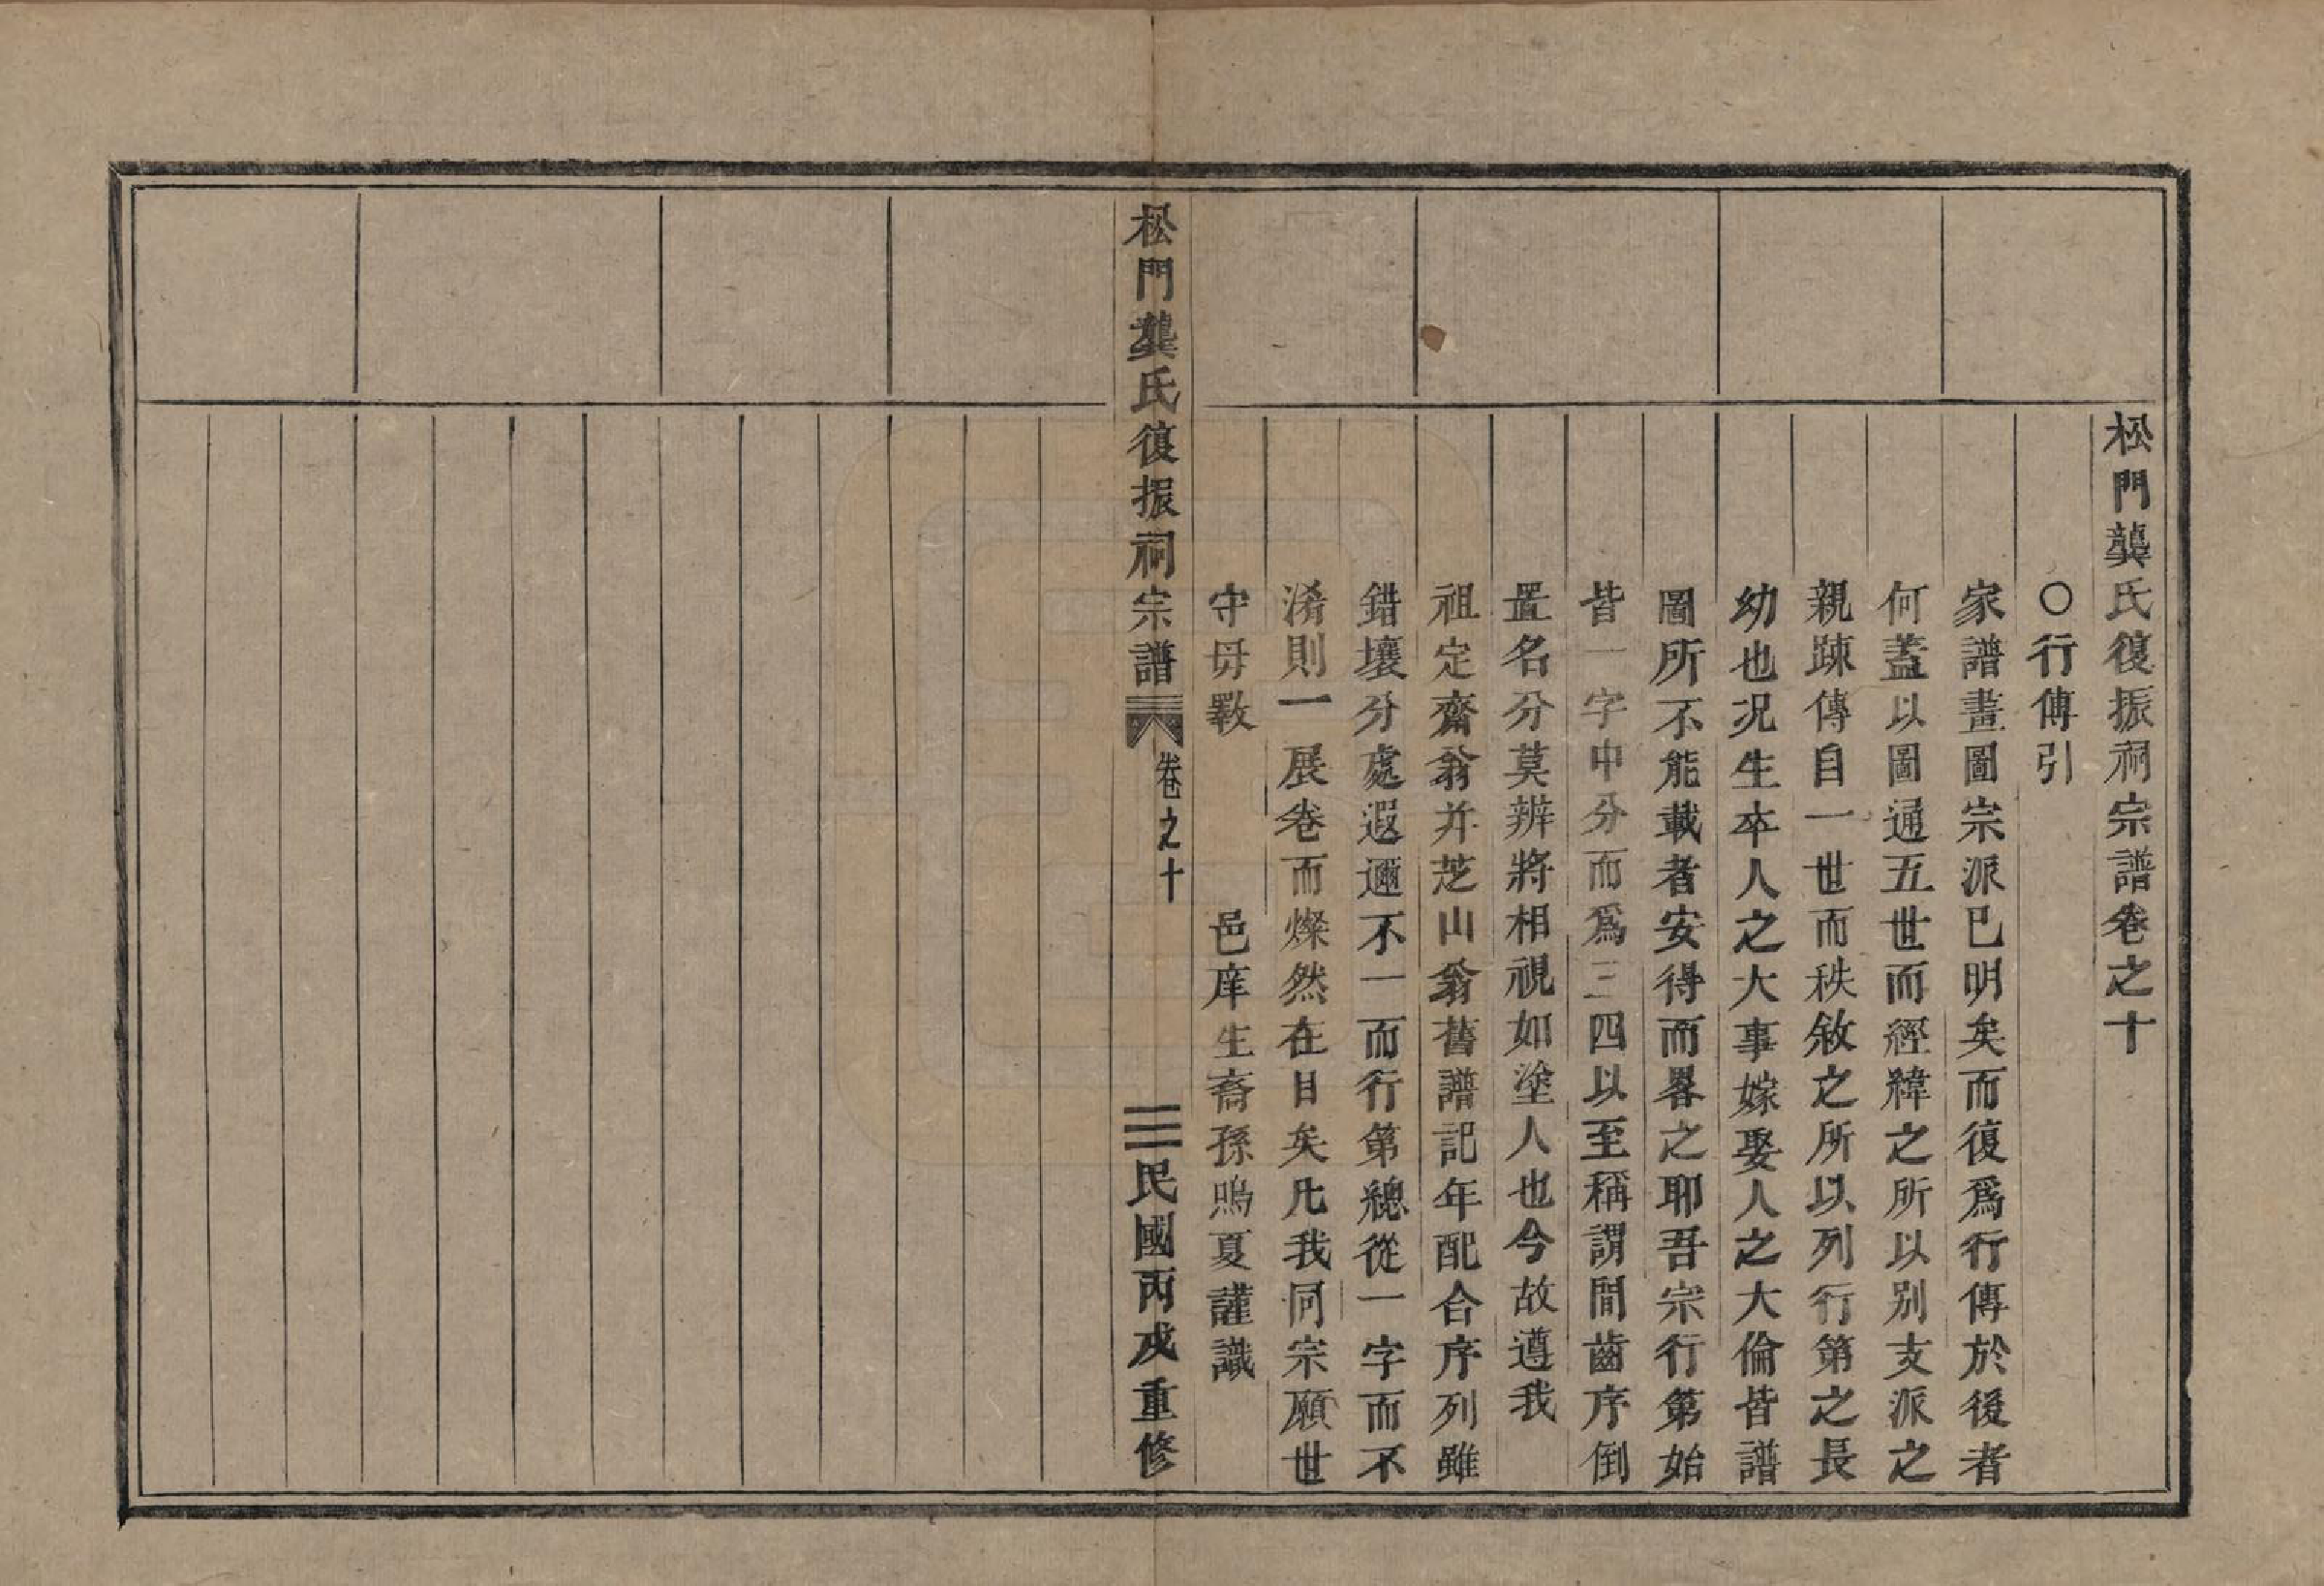 松門龔氏復振祠宗譜卷之十
〇行傳引
家譜畫圖宗派已明矣而復爲行傳於後者
何蓋以圖通五世而經緯之所以別支派之
親踈傳自一世而秩敘之所以列行第之長
幼也况生卒人之大事嫁娶人之大倫皆譜
圖所不能載者安得而畧之耶吾宗行第始
皆一字中分而爲三四以至稱謂間齒序倒
置名分莫辨將相視如塗人也今故遵我
祖定齋翁并芝山翁舊譜記年配合序列雖
錯壤分處遐邇不一而行第總從一字而不
淆則一展卷而燦然在目矣凡我同宗願世
守毋斁　邑庠生裔孫鳴夏謹識
松門龔氏復振祠宗譜 卷之十 民國丙戌重修